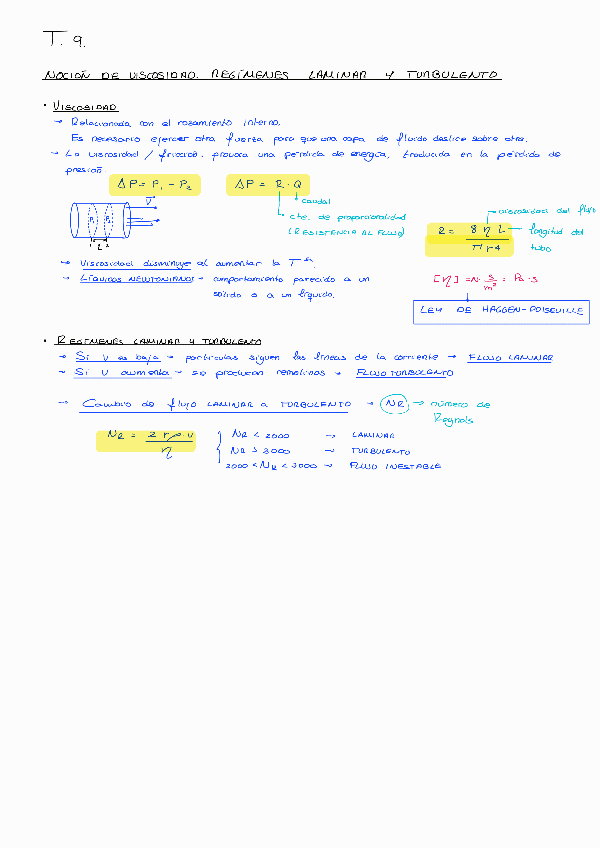 T. 9.
NOCIÓN DE VISCOSIDAD. REGÍMENES LAMINAR Y TURBULENTO
• VISCOSIDAD
→ Relacionada con el rozamiento interno.
Es necesario ejercer otra fuerza para que una capa de fluido deslice sobre otra.
→ La viscosidad / fricción: provoca una pérdida de energía, traducida en la pérdida de
presión.
ΔP = P₁ - P₂
ΔP = R · Q
caudal
cte. de proporcionalidad
(RESISTENCIA AL FLUJO)
V
1 L 2
R = 8 η L / π r4
viscosidad del flujo
longitud del
tubo
→ Viscosidad disminuye al aumentar la T ª.
→ LÍQUIDOS NEWTONIANOS → comportamiento parecido a un
sólido o a un líquido.
[η] = N · s/m² = Pa · s
LEY DE HAGGEN-POISEUILLE
• REGÍMENES LAMINAR Y TURBULENTO
→ Si V es baja → partículas siguen las líneas de la corriente → FLUJO LAMINAR
→ Si V aumenta → se producen remolinos → FLUJO TURBULENTO
→ Cambio de flujo LAMINAR a TURBULENTO → NR → número de
Reynols
NR = 2 r ρ v / η
NR < 2000 → LAMINAR
NR > 3000 → TURBULENTO
2000 < NR < 3000 → FLUJO INESTABLE